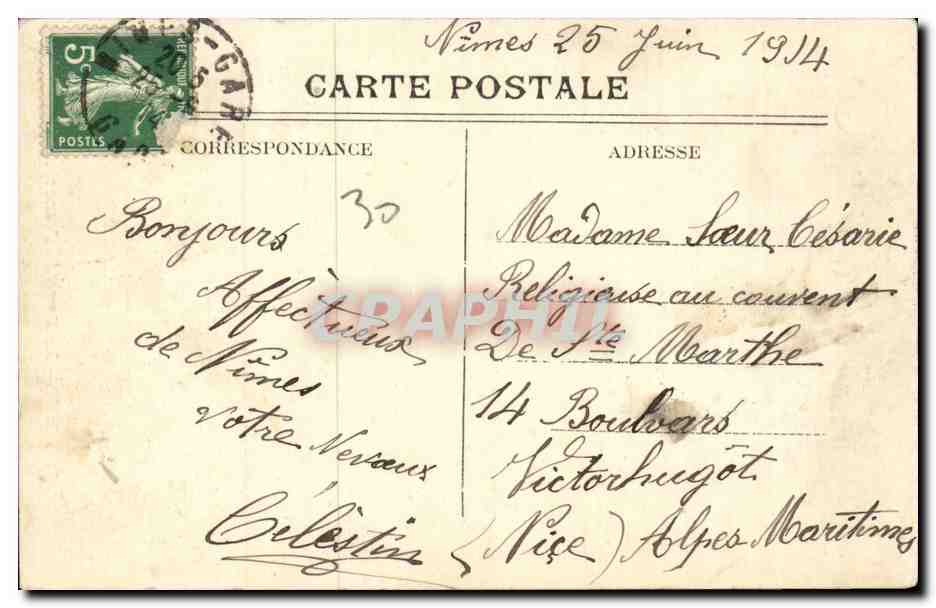 Nîmes 25 Juin 1914
5c
POSTES
NIMES-GARE
CARTE POSTALE
CORRESPONDANCE
ADRESSE
30
Bonjours
Affectueux
de Nîmes
Votre Neveux
Celèstin
Madame Sœur Césarie
Religieuse au couvent
De Ste Marthe
14 Boulvars
Victorhugôt
(Niçe) Alpes Maritimes
CPAPHIL